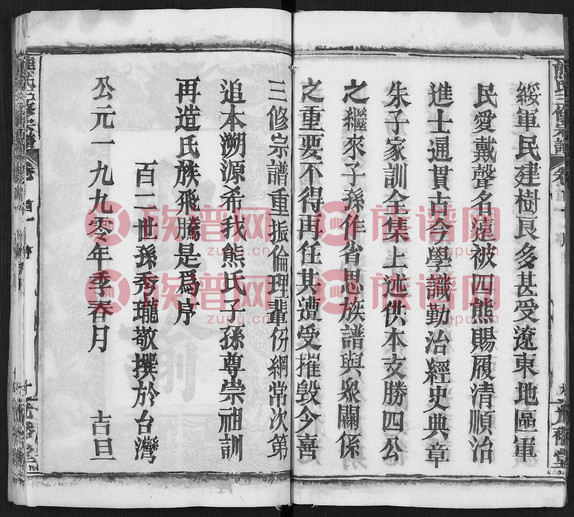 綏軍民建樹良多甚受遼東地區軍
民愛戴聲名遠被四熊賜履清順治
進士通貫古今學識勤治經史典章
朱子家訓全集上述供本支勝四公
之繼來子孫作省思族譜與衆關係
之重要不得再任其遭受摧毀今喜
三修宗譜重振倫理輩份綱常次第
追本溯源希我熊氏子孫尊崇祖訓
再造氏族飛騰是爲序
百二世孫秀瓏敬撰於台灣
公元一九九零年季春月 古旦
熊氏三修宗譜
卷首
族谱网
zupu.cn
族谱网
zupu.cn
族谱网
zupu.cn
族谱网
zupu.cn